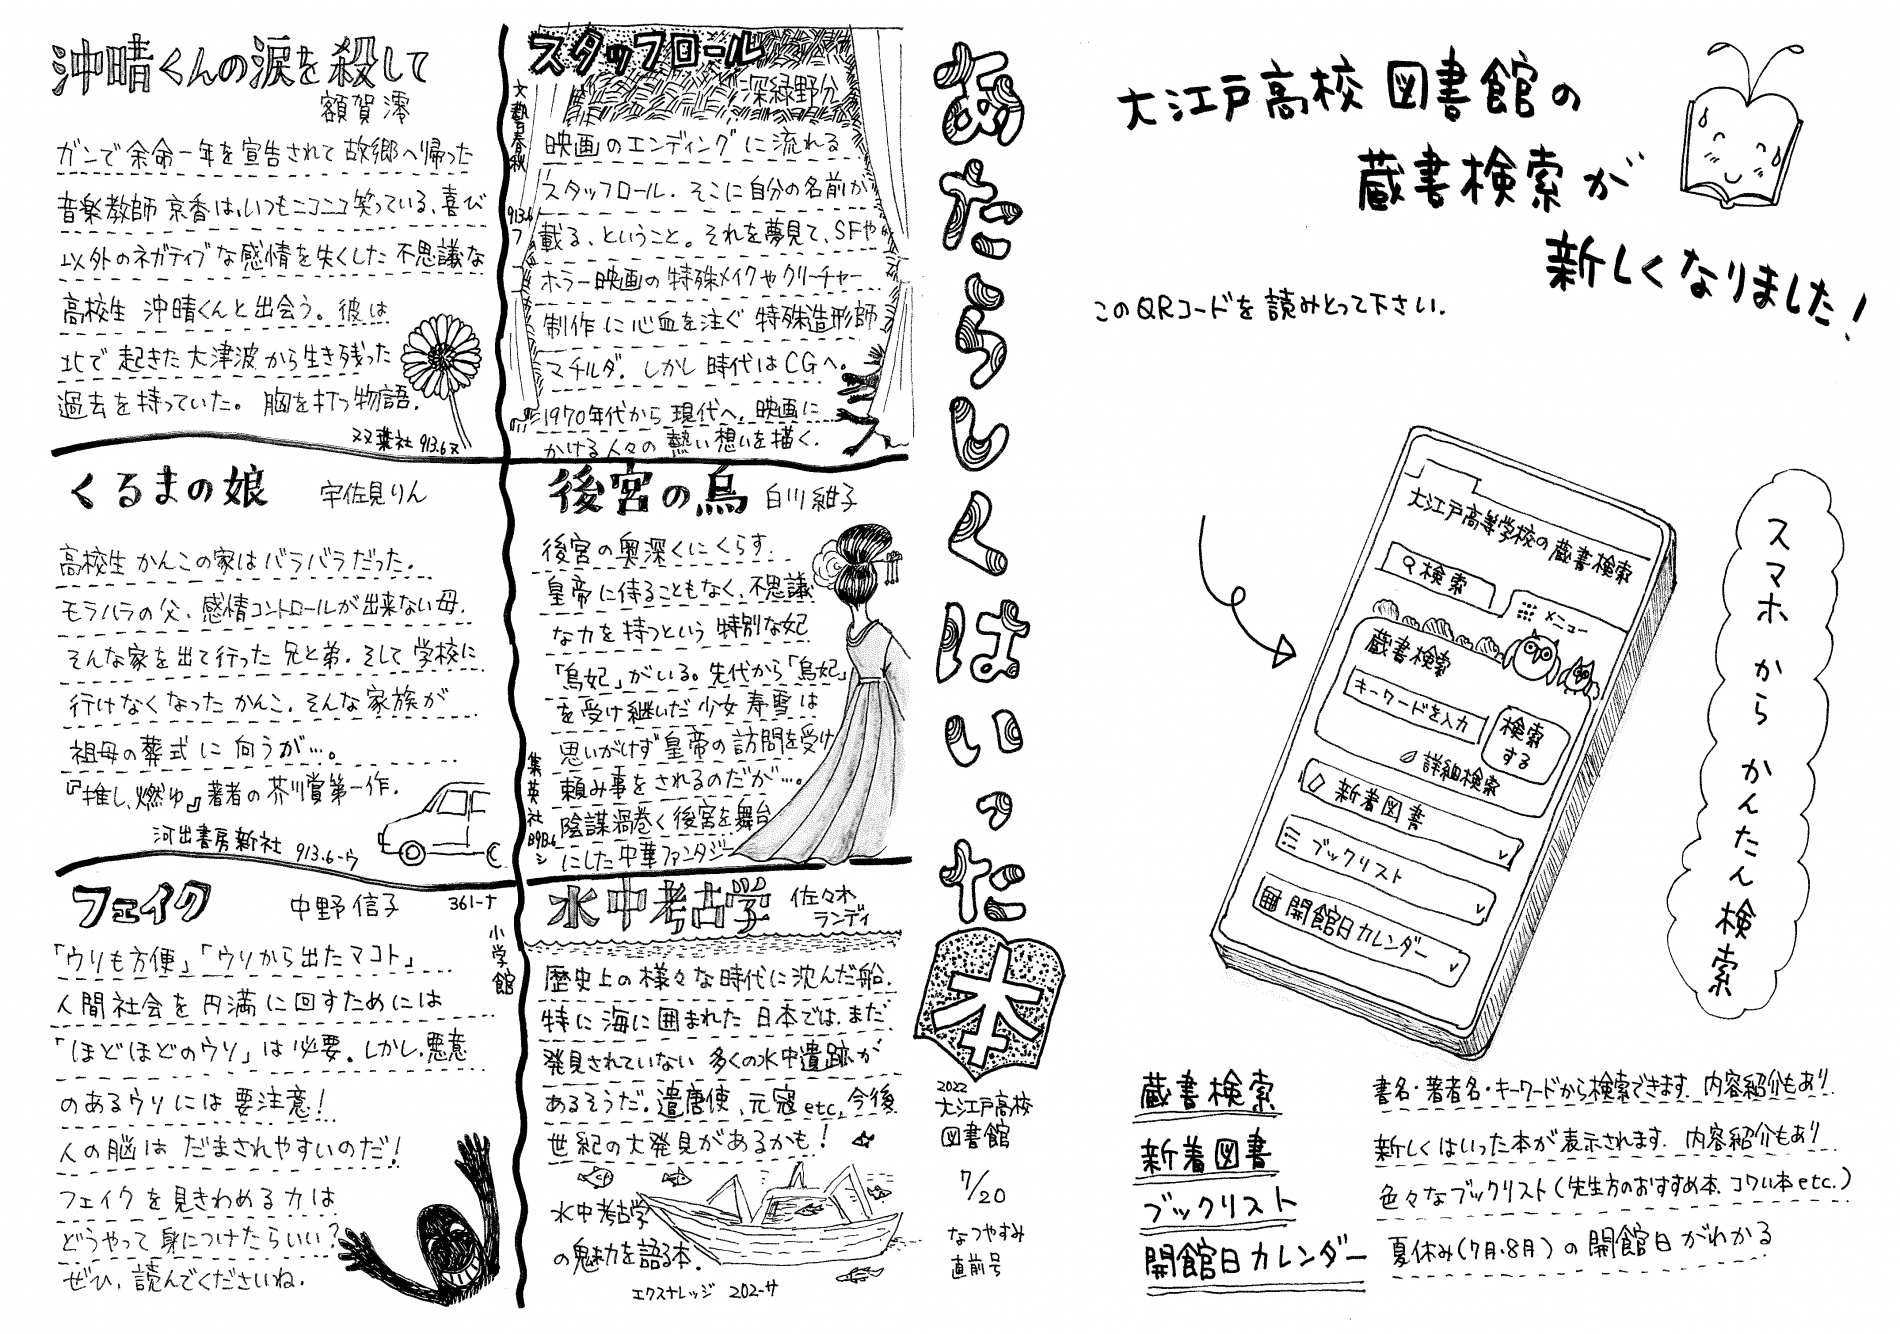 あたらしくはいった本
2022
大江戸高校
図書館
7/20
なつやすみ
直前号
スタッフロール
深緑野分
文藝春秋
913.6
フ
映画のエンディングに流れる
スタッフロール．そこに自分の名前が
載る、ということ。それを夢見て、SFや
ホラー映画の特殊メイクやクリーチャー
制作に心血を注ぐ特殊造形師
マチルダ．しかし時代はCGへ。
1970年代から現代へ、映画に
かける人々の熱い想いを描く．
沖晴くんの涙を殺して
額賀 澪
ガンで余命一年を宣告されて故郷へ帰った
音楽教師 京香は、いつもニコニコ笑っている、喜び
以外のネガティブな感情を失くした不思議な
高校生 沖晴くんと出会う。彼は
北で起きた大津波から生き残った
過去を持っていた。胸を打つ物語．
双葉社 913.6ヌ
後宮の烏
白川紺子
後宮の奥深くにくらす．
皇帝に侍ることもなく、不思議
な力を持つという特別な妃
「烏妃」がいる。先代から「烏妃」
を受け継いだ少女寿雪は
思いがけず皇帝の訪問を受け
頼み事をされるのだが…。
陰謀渦巻く後宮を舞台
にした中華ファンタジー
集英社
B913.6
シ
くるまの娘
宇佐見りん
高校生かんこの家はバラバラだった．
モラハラの父、感情コントロールが出来ない母．
そんな家を出て行った兄と弟．そして学校に
行けなくなったかんこ．そんな家族が
祖母の葬式に向うが…。
『推し、燃ゆ』著者の芥川賞第一作．
河出書房新社 913.6-ウ
水中考古学
佐々木
ランディ
歴史上の様々な時代に沈んだ船．
特に海に囲まれた日本では、まだ
発見されていない多くの水中遺跡が
あるそうだ。遣唐使、元寇etc、今後
世紀の大発見があるかも！
水中考古学
の魅力を語る本．
エクスナレッジ 202-サ
フェイク
中野信子
361-ナ
小学館
「ウソも方便」「ウソから出たマコト」
人間社会を円満に回すためには
「ほどほどのウソ」は必要。しかし、悪意
のあるウソには要注意！
人の脳はだまされやすいのだ！
フェイクを見きわめる力は
どうやって身につけたらいい？
ぜひ、読んでくださいね．
大江戸高校図書館の
蔵書検索が
新しくなりました！
このQRコードを読みとって下さい．
スマホからかんたん検索
大江戸高等学校の蔵書検索
検索
メニュー
蔵書検索
キーワードを入力
検索
する
詳細検索
新着図書
ブックリスト
開館日カレンダー
蔵書検索 書名・著者名・キーワードから検索できます．内容紹介もあり
新着図書 新しくはいった本が表示されます．内容紹介もあり
ブックリスト 色々なブックリスト（先生方のおすすめ本、コワい本etc.）
開館日カレンダー 夏休み（7月・8月）の開館日がわかる